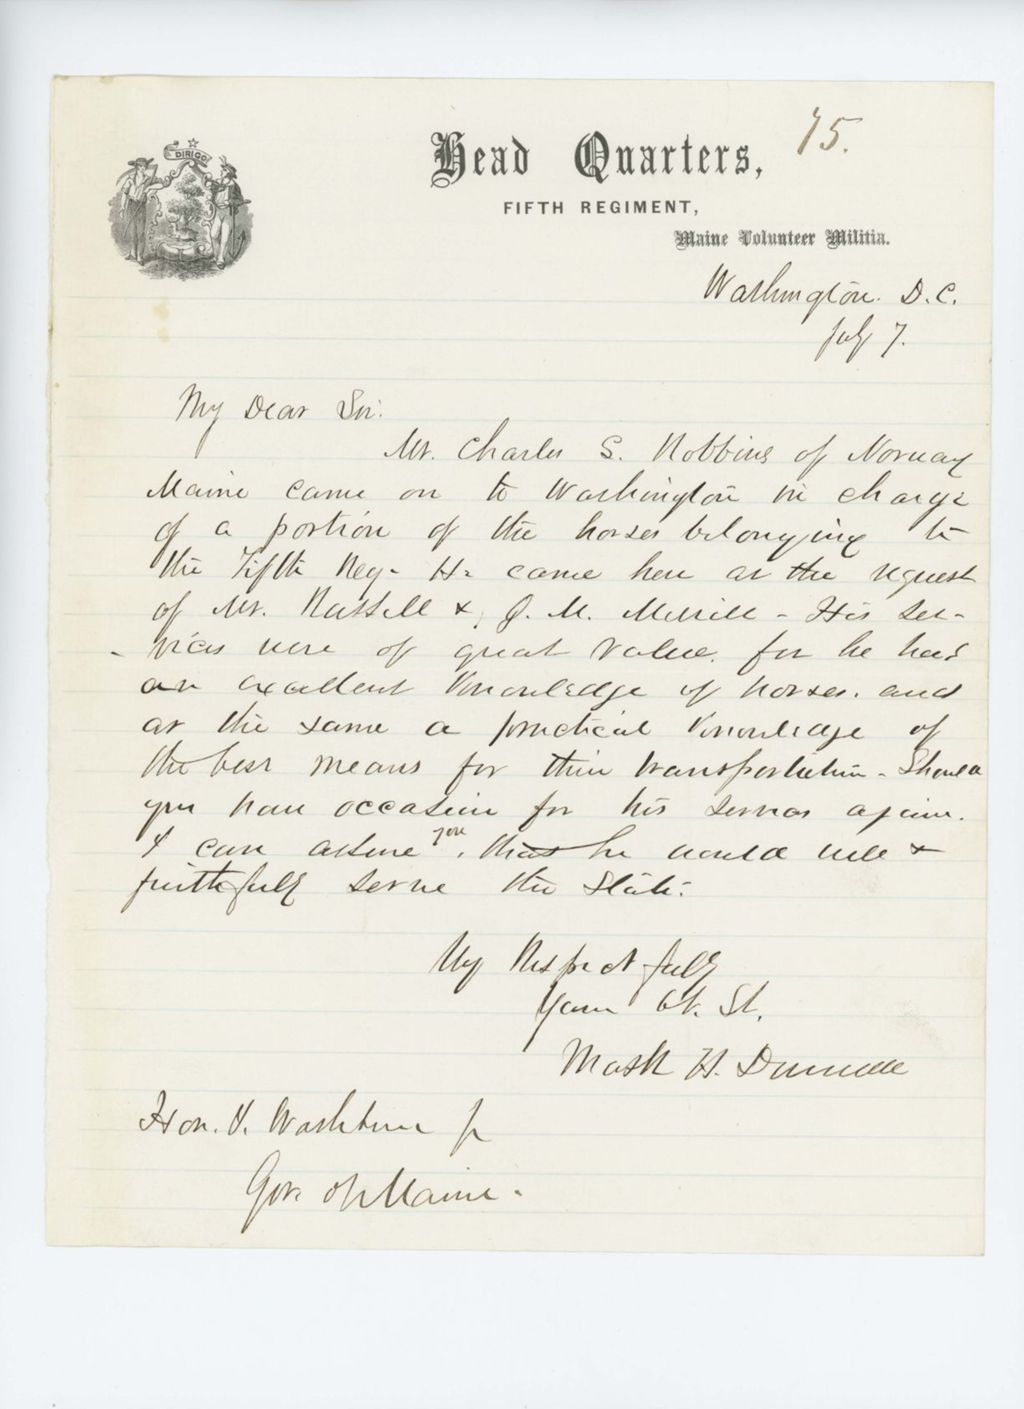 75.
DIRIGO
Head Quarters,
FIFTH REGIMENT,
Maine Volunteer Militia.
Washington. D.C.
July 7.
My Dear Sir:
Mr. Charles S. Robbins of Norway
Maine came on to Washington in charge
of a portion of the horses belonging to
the Fifth Reg- He came here at the request
of Mr. Russell & J. M. Merrill - His ser-
-vices were of great value. for he has
an excellent knowledge of horses. and
at the same a practical knowledge of
the best means for their transportation - Should
you have occasion for his services again.
I can assure you, that he would well &
faithfully serve the State.
Very Respectfully
Your Ob. St.
Mark H. Dunnell
Hon. I. Washburn Jr
Gov. of Maine.